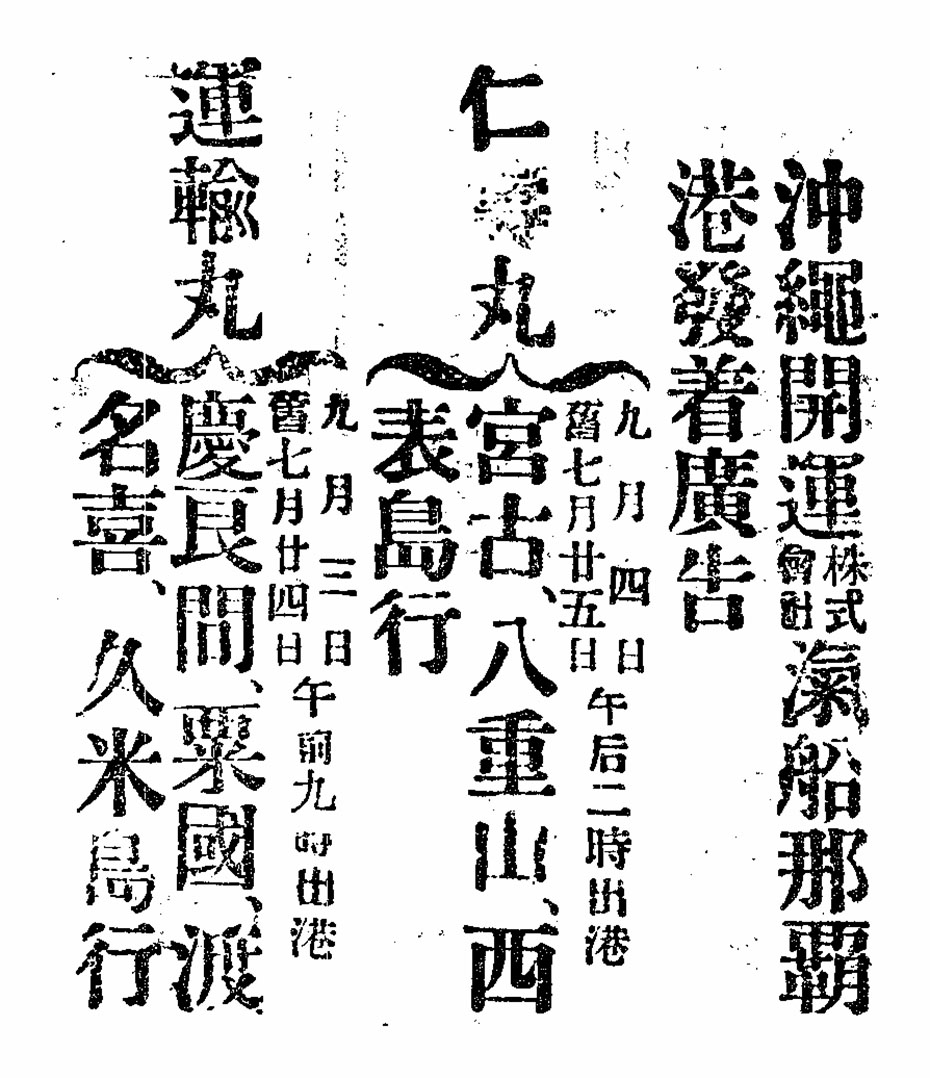 沖繩開運株式會社滊船那覇
港發着廣告
仁丸
九月四日
舊七月廿五日
午后二時出港
宮古、八重山、西
表島行
運輸丸
九月三日
舊七月廿四日
午前九時出港
慶良間、粟國、渡
名喜、久米島行